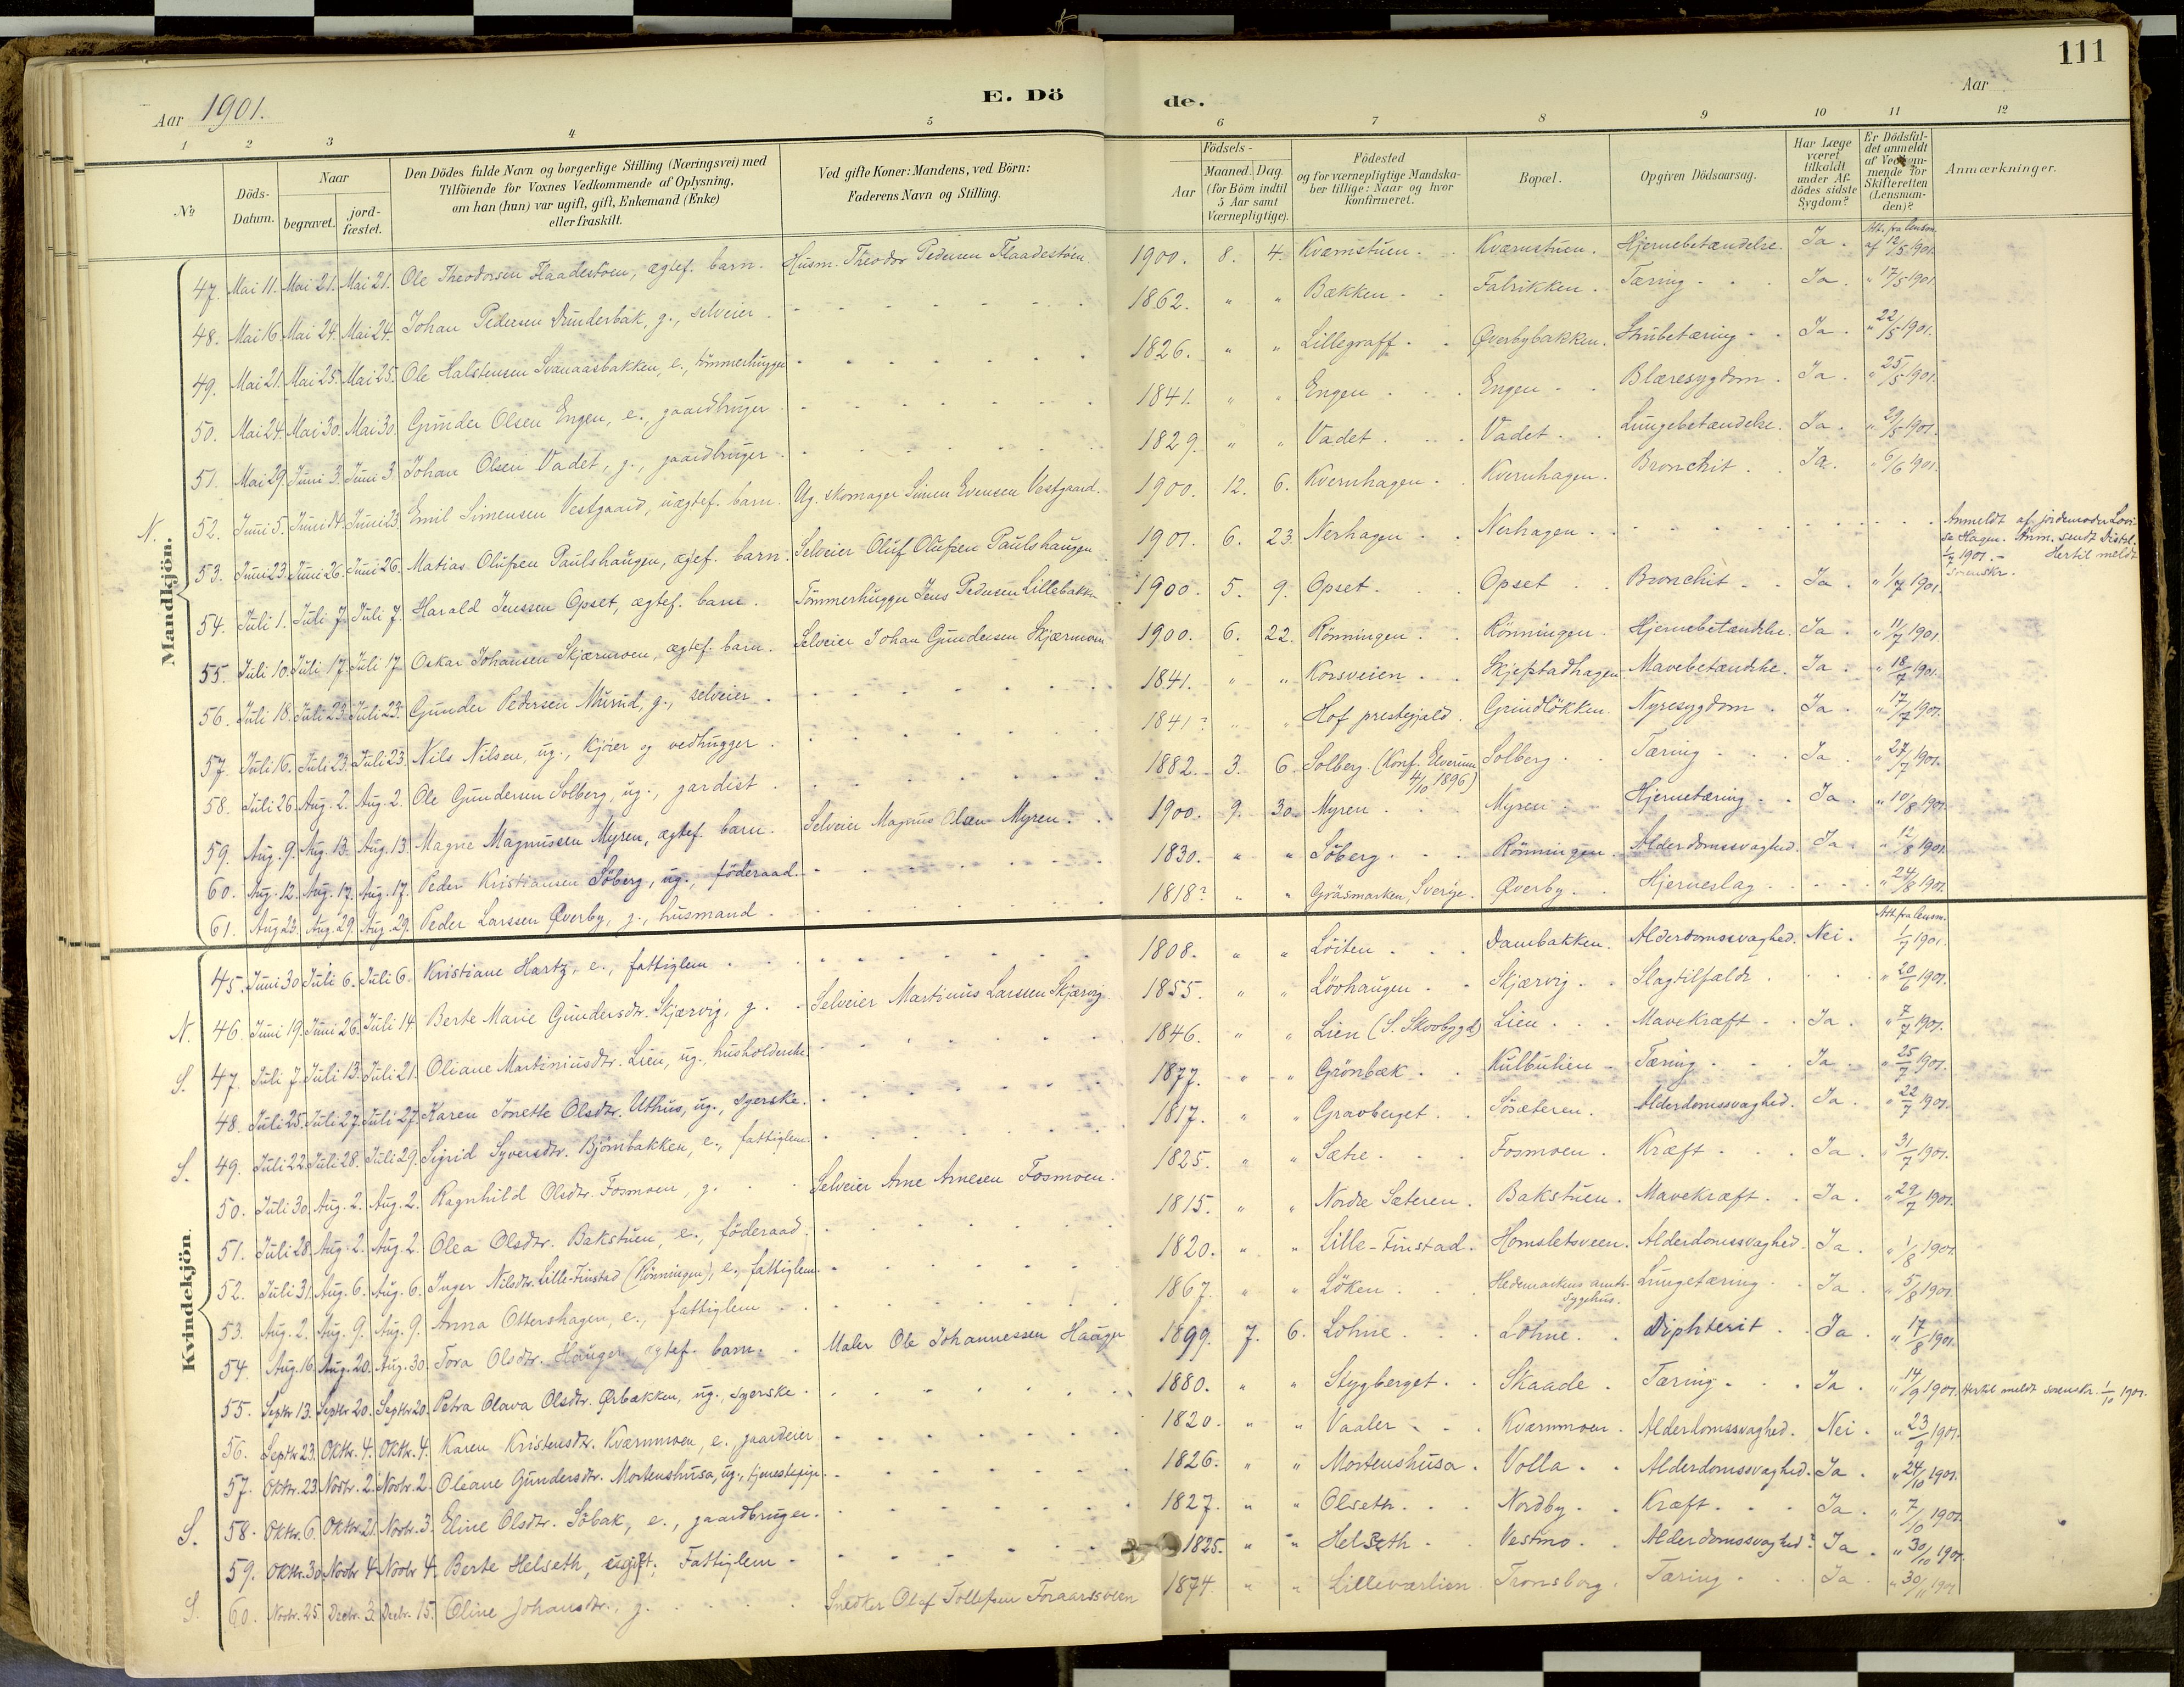 111
Aar 1901.
E. Dö
de.
Aar
1 2 3 4 5 6 7 8 9 10 11 12
№
Döds-Datum.
Naar
begravet.
jord-fæstet.
Den Dödes fulde Navn og borgerlige Stilling (Næringsvei) med
Tilföiende for Voxnes Vedkommende af Oplysning,
om han (hun) var ugift, gift, Enkemand (Enke)
eller fraskilt.
Ved gifte Koner: Mandens, ved Börn:
Faderens Navn og Stilling.
Födsels-
Aar
Maaned. Dag.
(for Börn indtil
5 Aar samt
Værnepligtige).
Födested
og for værnepligtige Mandska-
ber tillige: Naar og hvor
konfirmeret.
Bopæl.
Opgiven Dödsaarsag.
Har Læge
været
tilkaldt
under Af-
dödes sidste
Sygdom?
Er Dödsfal-
det anmeldt
af Vedkom-
mende for
Skifteretten
(Lensman-
den)?
Anmærkninger.
Mandkjön.
47. Mai 11. Mai 21. Mai 21. Ole Theodorsen Flaadestöen, ægtef. barn. Husm. Theodor Pedersen Flaadestöen 1900. 8. 4. Kværnstuen. Kværnstuen. Hjernebetændelse. Ja. Att. fra lensm. af 12/5 1901.
48. Mai 16. Mai 24. Mai 24. Johan Pedersen Dunderbak, g., selveier. 1862. " " Bækken. Fabrikken. Tæring. Ja. " 17/5 1901.
49. Mai 21. Mai 25. Mai 25. Ole Halstensen Svanaasbakken, e., tömmerhugger 1826. " " Lillegraff. Øverbybakken. Strubetæring. Ja. " 22/5 1901.
50. Mai 24. Mai 30. Mai 30. Gunder Olsen Engen, e., gaardbruger. 1841. " " Engen. Engen. Blæresygdom. Ja. " 25/5 1901.
51. Mai 29. Juni 3. Juni 3. Johan Olsen Vadet, g., gaardbruger. 1829. " " Vadet. Vadet. Lungebetændelse. Ja. " 29/5 1901.
N. 52. Juni 5. Juni 14. Juni 23. Emil Simensen Vestgaard, uægtef. barn. Ug. skomager Simen Evensen Vestgaard. 1900. 12. 6. Kvernhagen. Kvernhagen. Bronchit. Ja. " 6/6 1901.
53. Juni 23. Juni 26. Juni 26. Matias Olufsen Paulshaugen, ægtef. barn. Selveier Oluf Olufsen Paulshaugen 1901. 6. 23. Nerhagen. Nerhagen. Anmeldt af jordemoder Lovise Hagen. Anm. sendt Distrl. 1/7 1901. – Hertil meldt sorenskr.
54. Juli 1. Juli 7. Juli 7. Harald Jenssen Opset, ægtef. barn. Tömmerhugger Jens Pedersen Lillebakken 1900. 5. 9. Opset. Opset. Bronchit. Ja. " 1/7 1901.
55. Juli 10. Juli 17. Juli 17. Oskar Johansen Skjærmoen, ægtef. barn. Selveier Johan Gundersen Skjærmoen 1900. 6. 22. Rönningen. Rönningen. Hjernebetændelse. Ja. " 11/7 1901.
56. Juli 18. Juli 23. Juli 23. Gunder Pedersen Murud, g., selveier. 1841. " " Korsveien. Skjefstadhagen. Mavebetændelse. Ja. " 18/7 1901.
57. Juli 16. Juli 23. Juli 23. Nils Nilsen, ug., kjörer og vedhugger. 1841? " " Hof prestegjæld. Grindlökken. Nyresygdom. Ja. " 17/7 1901.
58. Juli 26. Aug. 2. Aug. 2. Ole Gundersen Solberg, ug., gardist. 1882. 3. 6. Solberg. (Konf. Elverum 4/10 1896) Solberg. Tæring. Ja. " 27/7 1901.
59. Aug. 9. Aug. 13. Aug. 13. Magne Magnussen Myren, ægtef. barn. Selveier Magnus Olsen Myren. 1900. 9. 30. Myren. Myren. Hjernetæring. Ja. " 10/8 1901.
60. Aug. 12. Aug. 17. Aug. 17. Peder Kristiansen Söberg, ug., föderaad. 1830. " " Söberg. Rönningen. Alderdomssvaghed. Ja. " 12/8 1901.
61. Aug. 23. Aug. 29. Aug. 29. Peder Larssen Øverby, g., husmand. 1818? " " Gräsmarken, Sverige. Øverby. Hjerneslag. " 24/8 1901.
Kvindekjön.
45. Juni 30. Juli 6. Juli 6. Kristiane Hartz, e., fattiglem. 1808. " " Löiten. Dambakken. Alderdomssvaghed. Nei. Att. fra lensm. 1/7 1901.
N. 46. Juni 19. Juni 26. Juli 14. Berte Marie Gundersdtr. Skjærvig, g. Selveier Martinus Larssen Skjærvig. 1855. " " Lövhaugen. Skjærvig. Slagtilfælde. " 20/6 1901.
S. 47. Juli 7. Juli 13. Juli 21. Oliane Martiniusdtr. Lien, ug., husholderske. 1846. " " Lien (S. Skovbygd) Lien. Mavekræft. Ja. " 7/7 1901.
48. Juli 25. Juli 27. Juli 27. Karen Jonette Olsdtr. Uthus, ug., syerske. 1877. " " Grönbæk. Kulbulien. Tæring. Ja. " 25/7 1901.
S. 49. Juli 22. Juli 28. Juli 29. Sigrid Syversdtr. Björnbakken, e., fattiglem. 1817. " " Gravberget. Sösæteren. Alderdomssvaghed. Ja. " 22/7 1901.
50. Juli 30. Aug. 2. Aug. 2. Ragnhild Olsdtr. Fosmoen, g. Selveier Arne Arnesen Fosmoen. 1825. " " Sætre. Fosmoen. Kræft. Ja. " 31/7 1901.
51. Juli 28. Aug. 2. Aug. 2. Olea Olsdtr. Bakstuen, e., föderaad. 1815. " " Nordre Sæteren. Bakstuen. Mavekræft. Ja. " 29/7 1901.
52. Juli 31. Aug. 6. Aug. 6. Inger Nilsdtr. Lille-Finstad (Rönningen), e., fattiglem. 1820. " " Lille-Finstad. Homsletsveen. Alderdomssvaghed. Ja. " 1/8 1901.
53. Aug. 2. Aug. 9. Aug. 9. Anna Ottershagen, e., fattiglem. 1867. " " Löken. Hedemarkens amtssygehus. Lungetæring. Ja. " 5/8 1901.
54. Aug. 16. Aug. 20. Aug. 30. Tora Olsdtr. Hauger, ægtef. barn. Maler Ole Johannessen Hauger 1899. 7. 6. Lohne. Lohne. Diphterit. Ja. " 17/8 1901.
55. Septbr 13. Septbr 20. Septbr 20. Petra Olava Olsdtr. Ørbækken, ug., syerske. 1880. " " Stygberget. Skaade. Tæring. Ja. " 14/9 1901. Hertil meldt sorenskr. 1/10 1901.
56. Septbr 23. Oktbr. 4. Oktbr. 4. Karen Kristensdtr. Kværnmoen, e., gaardeier 1820. " " Vaaler. Kværnmoen. Alderdomssvaghed. Nei. " 23/9 1901.
57. Oktbr. 23. Novbr. 2. Novbr. 2. Oleane Gundersdtr. Mortenshusa, ug., tjenestepige. 1826. " " Mortenshusa. Volla. Alderdomssvaghed. Ja. " 24/10 1901.
S. 58. Oktbr. 6. Oktbr. 21. Novbr. 3. Eline Olsdtr. Söbak, e., gaardbruger. 1827. " " Olseth. Nordby. Kræft. Ja. " 7/10 1901.
59. Oktbr. 30. Novbr 4. Novbr 4. Berte Helseth, ugift, Fattiglem. 1825. " " Helseth. Vestmo. Alderdomssvaghed? Ja. " 30/10 1901.
S. 60. Novbr. 25. Decbr. 3. Decbr. 15. Oline Johansdtr., g. Snedker Olaf Tollefsen Foraarsveen 1874. " " Lilleværlien. Tronsborg. Tæring. Ja. " 30/11 1901